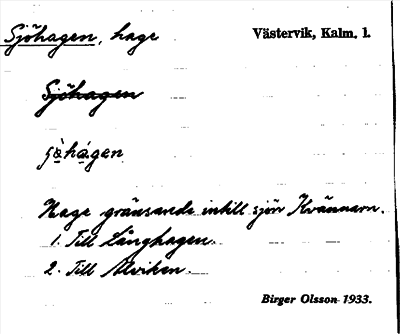 Sjöhagen, hage Västervik, Kalm. l.
Sjöhagen
hågen
Hage gränsande intill sjön Kvännarn.
1. Till Långhagen.
2. Till Alviken.
Birger Olsson 1933.